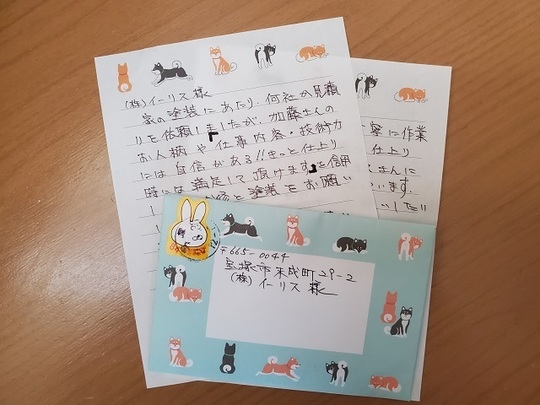 (株)イーリス様
家の塗装にあたり、何社か見積
りを依頼しましたが、加藤さんの
お人柄や仕事内容・技術力
には自信がある!!きっと仕上り
時には満足して頂けます を信用
塗装をお願い
寧に作業
仕上り
さんに
います。
〒665-0044
宝塚市末成町29-2
(株)イーリス様